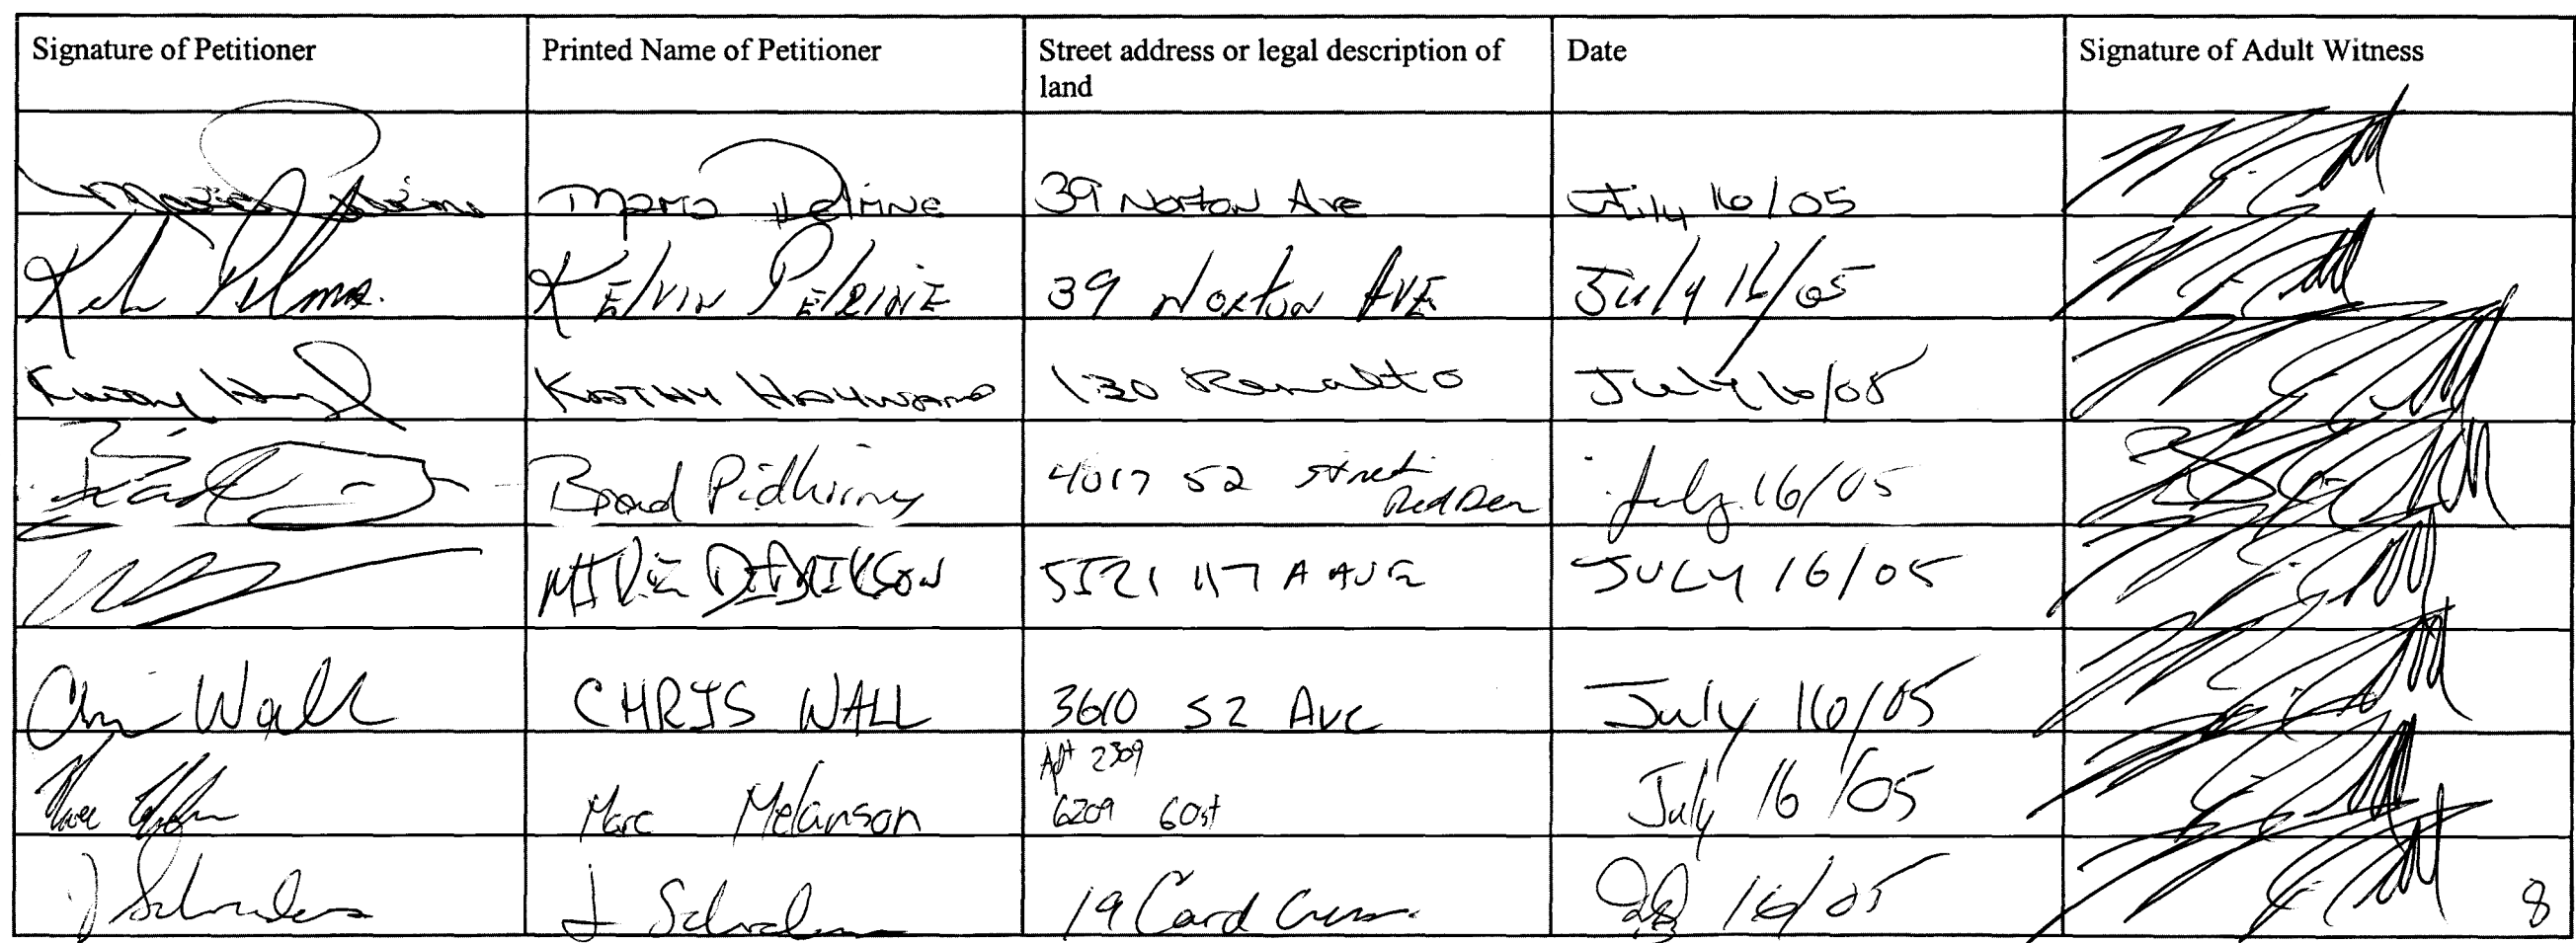 Signature of Petitioner Printed Name of Petitioner Street address or legal description of land Date Signature of Adult Witness
39 Norton Ave July 16/05
KELVIN PELRINE 39 Norton AVE July 16/05
KATHY HAYWARD 130 July 16/05
Brad Pidhirny 4017 52 street Red Deer July 16/05
MIKE DIDRIKSON 5521 47 A AVE JULY 16/05
Chris Wall CHRIS WALL 3610 52 Ave July 16/05
Apt 2309
Marc Melanson 6209 60st July 16/05
J Schrader 19 Card 16/05
8